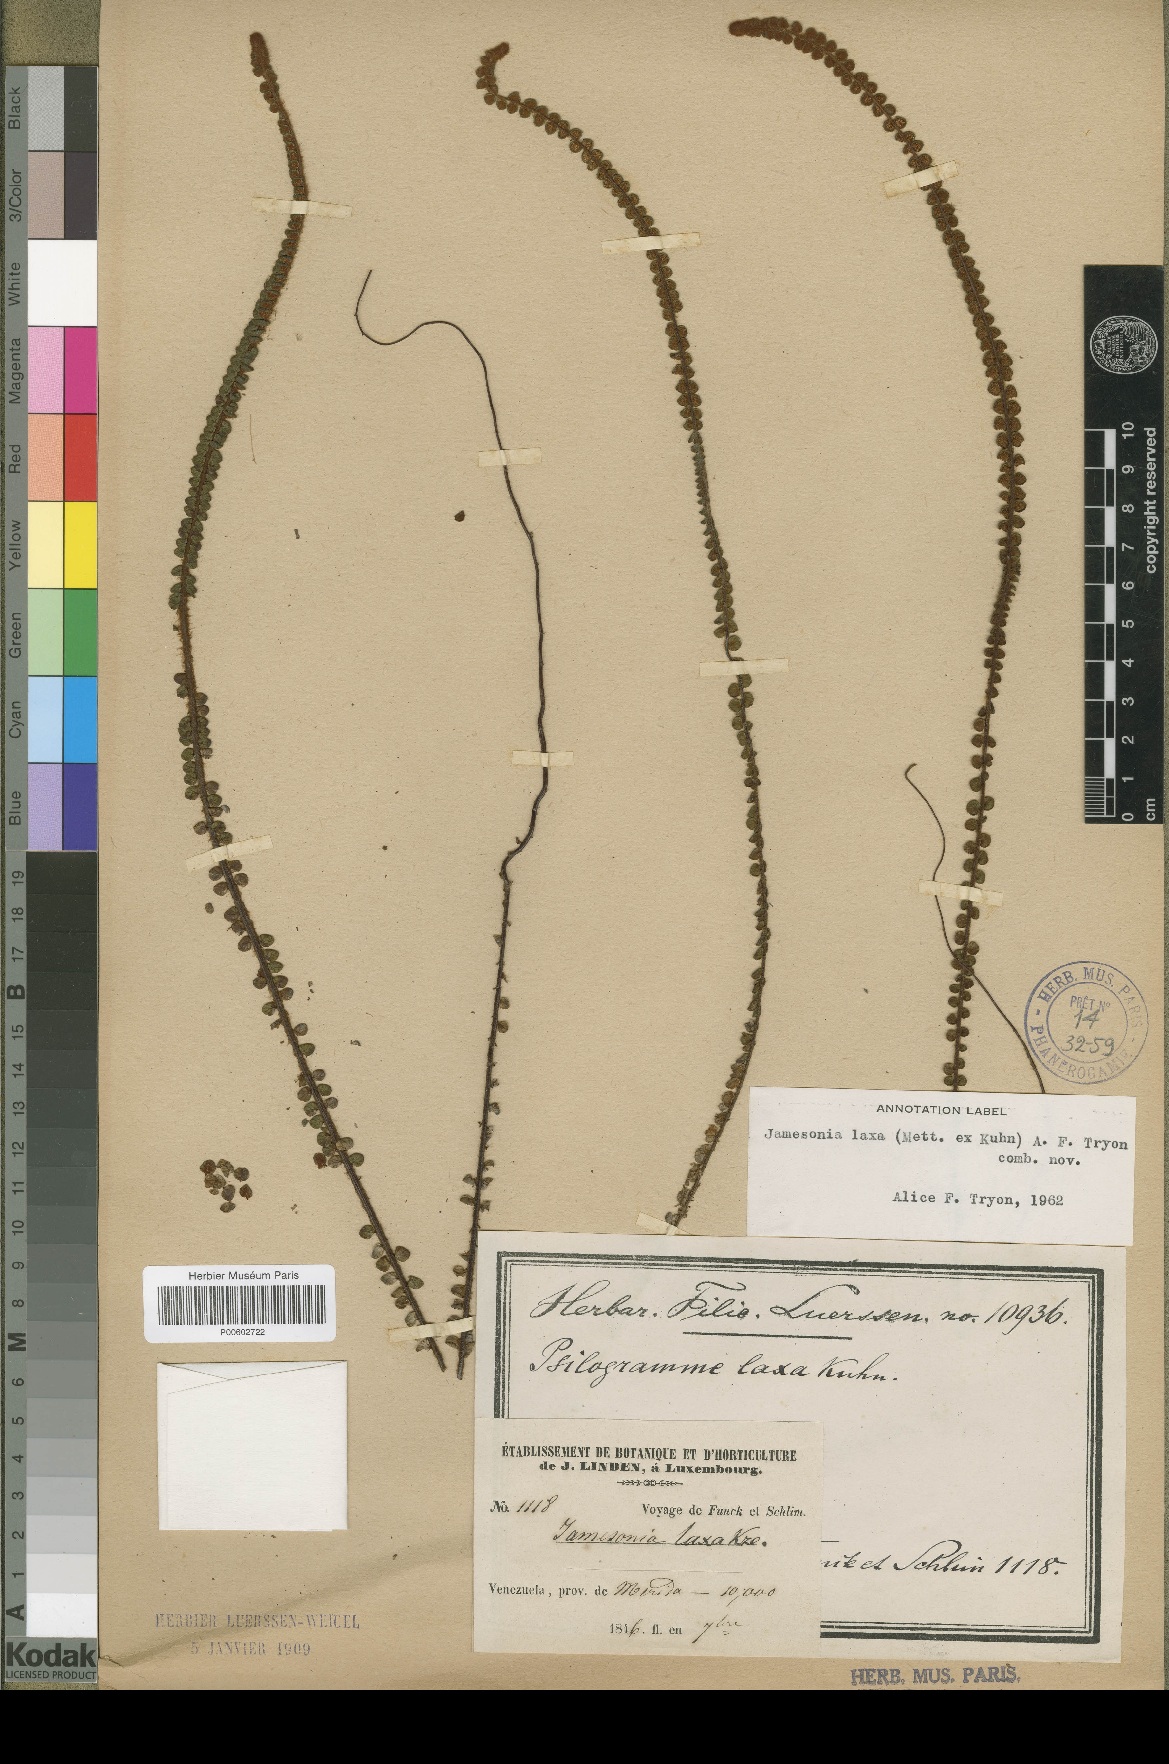 Black
3/Color
White
Magenta
Red
Yellow
Green
Cyan
Blue
19
18
17
B
15
14
13
12
11
10
9
8
M
6
5
4
3
2
1
A
Kodak
LICENSED PRODUCT
copyright reserved
10
9
8
7
6
5
4
3
2
1
0
cm
HERB. MUS. PARIS
PRÊT No
14
3259
PHANEROGAMIE
ANNOTATION LABEL
Jamesonia laxa (Mett. ex Kuhn) A. F. Tryon
comb. nov.
Alice F. Tryon, 1962
Herbier Muséum Paris
P00602722
Herbar. Filic. Luerssen. no. 10936.
Psilogramme laxa Kuhn.
et Schlim 1118.
ÉTABLISSEMENT DE BOTANIQUE ET D'HORTICULTURE
de J. LINDEN, á Luxembourg.
No. 1118 Voyage de Funck et Schlim.
Jamesonia laxa Kze.
Venezuela, prov. de Merida — 10,000
1846. fl. en 7bre
HERBIER LUERSSEN-WEIGEL
5 JANVIER 1909
HERB. MUS. PARIS.